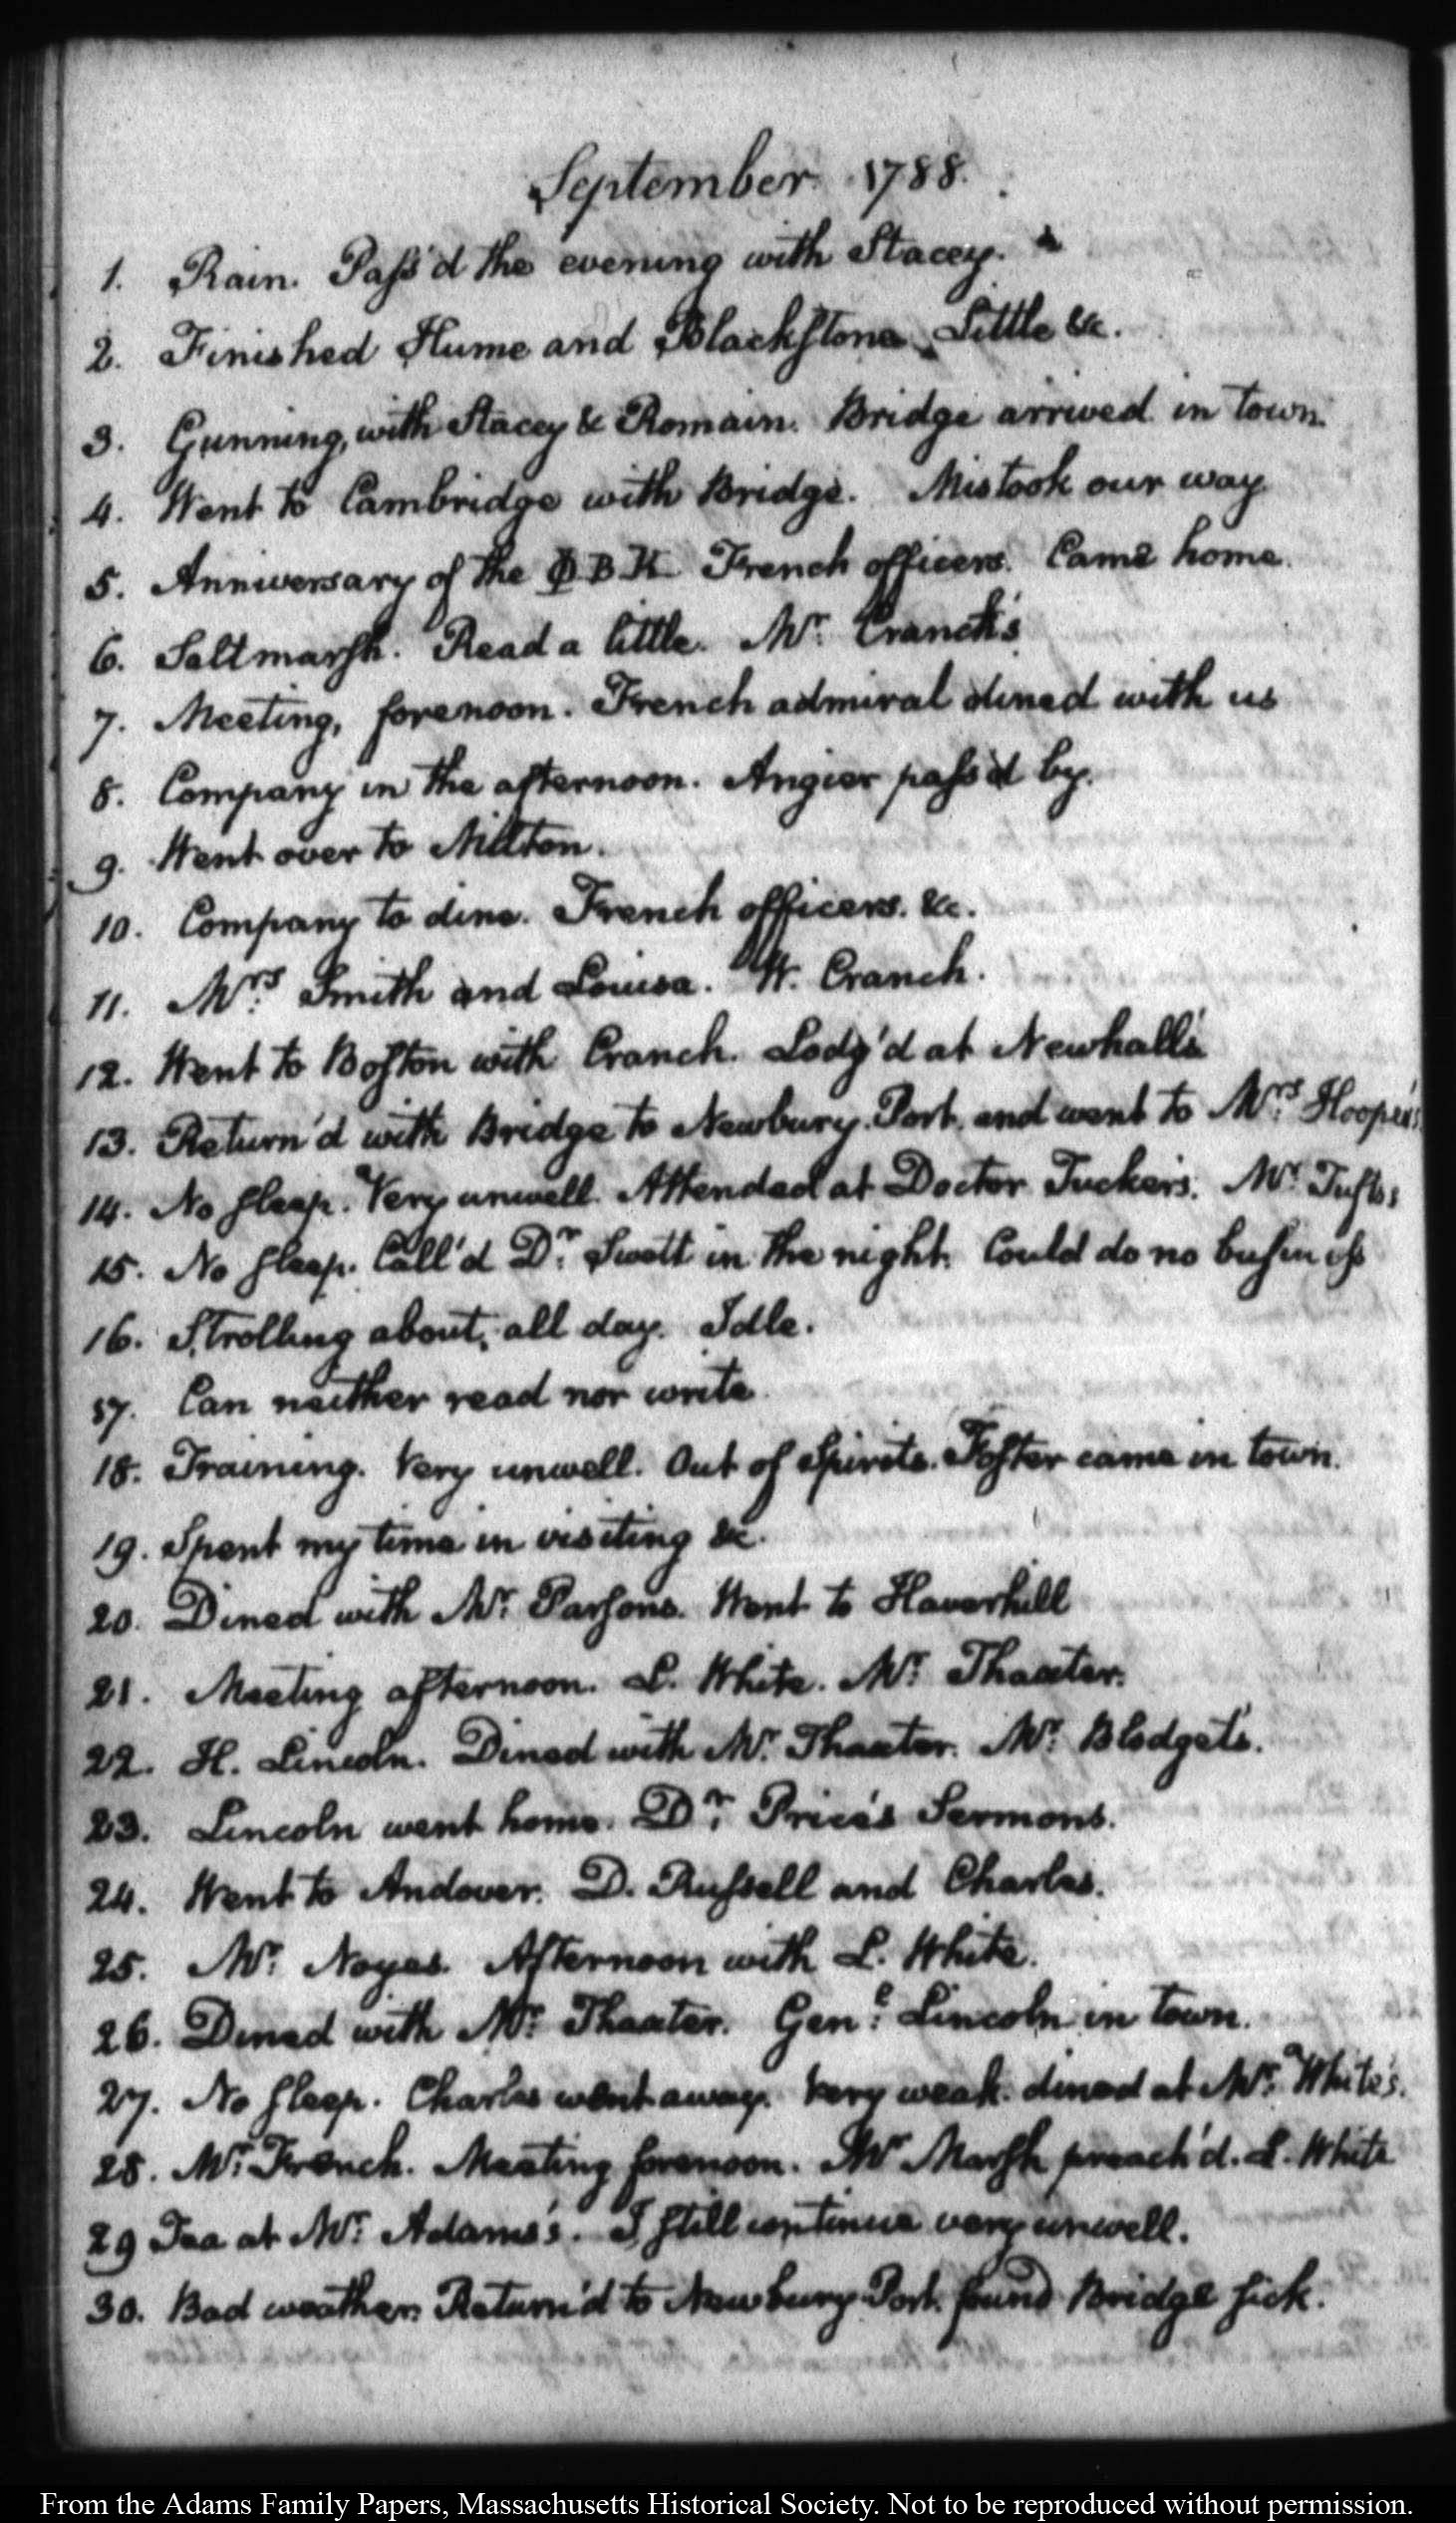 September 1788.
1. Rain. Pass'd the evening with Stacey.
2. Finished Hume and Blackstone. Little &c.
3. Gunning, with Stacey & Romain. Bridge arrived in town.
4. Went to Cambridge with Bridge. Mistook our way.
5. Anniversary of the ΦBK French officers. Came home.
6. Saltmarsh. Read a little. Mr. Cranch's.
7. Meeting, forenoon. French admiral dined with us
8. Company in the afternoon. Angier pass'd by.
9. Went over to Milton.
10. Company to dine. French officers. &c.
11. Mrs. Smith and Louisa. W. Cranch.
12. Went to Boston with Cranch. Lodg'd at Newhall's
13. Return'd with Bridge to Newbury-Port. and went to Mrs. Hooper's
14. No sleep. Very unwell. Attended at Doctor Tucker's. Mr. Tufts
15. No sleep. Call'd Dr. Swett in the night. Could do no business
16. Strolling about, all day. Idle.
17. Can neither read nor write.
18. Training. Very unwell. Out of Spirits. Foster came in town.
19. Spent my time in visiting &c.
20. Dined with Mr. Parsons. Went to Haverhill
21. Meeting afternoon. L. White. Mr. Thaxter.
22. H. Lincoln. Dined with Mr. Thaxter. Mr. Blodget's.
23. Lincoln went home. Dr. Price's Sermons.
24. Went to Andover. D. Russell and Charles.
25. Mr. Noyes. Afternoon with L. White.
26. Dined with Mr. Thaxter. Genl. Lincoln in town.
27. No sleep. Charles went away. Very weak. dined at Mr. White's.
28. Mr. French. Meeting forenoon. Mr. Marsh preach'd. L. White
29 Tea at Mr. Adams's. I still continue very unwell.
30. Bad weather. Return'd to Newbury-Port. found Bridge sick.
From the Adams Family Papers, Massachusetts Historical Society. Not to be reproduced without permission.